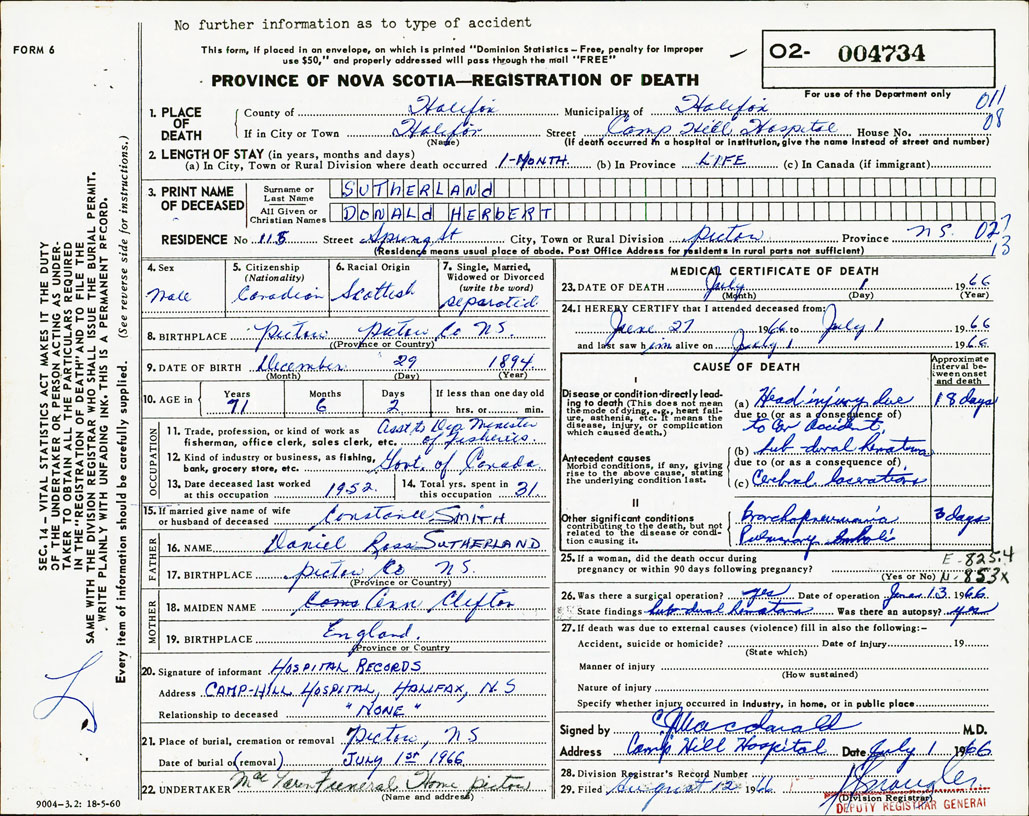 No further information as to type of accident
FORM 6
This form, if placed in an envelope, on which is printed "Dominion Statistics – Free, penalty for improper
use $50," and properly addressed will pass through the mail "FREE"
PROVINCE OF NOVA SCOTIA—REGISTRATION OF DEATH
O2- 004734
For use of the Department only
011
08
1. PLACE OF DEATH
County of Halifax Municipality of Halifax
If in City or Town Halifax Street Camp Hill Hospital House No.
(Name) (If death occurred in a hospital or institution, give the name instead of street and number)
2. LENGTH OF STAY (in years, months and days)
(a) In City, Town or Rural Division where death occurred 1-MONTH (b) In Province LIFE (c) In Canada (if immigrant)
3. PRINT NAME OF DECEASED
Surname or Last Name SUTHERLANd
All Given or Christian Names DONALd HERBERT
RESIDENCE No 115 Street Spring St City, Town or Rural Division Pictou Province N.S. 027
13
(Residence means usual place of abode. Post Office Address for residents in rural parts not sufficient)
4. Sex
Male
5. Citizenship (Nationality)
Canadian
6. Racial Origin
Scottish
7. Single, Married, Widowed or Divorced (write the word)
separated
8. BIRTHPLACE Pictou Pictou Co N.S.
(Province or Country)
9. DATE OF BIRTH December 29 1894
(Month) (Day) (Year)
10. AGE in Years Months Days If less than one day old
71 6 2 hrs. or min.
OCCUPATION
11. Trade, profession, or kind of work as Asst to Dep Minister
fisherman, office clerk, sales clerk, etc. of fisheries.
12. Kind of industry or business, as fishing,
bank, grocery store, etc. Govt. of Canada
13. Date deceased last worked
at this occupation 1952
14. Total yrs. spent in
this occupation 31
15. If married give name of wife
or husband of deceased Constance SMITH
FATHER
16. NAME Daniel Ross SUTHERLAND
17. BIRTHPLACE Pictou Co N.S.
(Province or Country)
MOTHER
18. MAIDEN NAME Ann Clifton
19. BIRTHPLACE England.
(Province or Country)
20. Signature of informant HOSPITAL RECORDS
Address CAMP-HILL HOSPITAL, HALIFAX, N.S
Relationship to deceased "NONE"
21. Place of burial, cremation or removal Pictou, NS
Date of burial (or removal) JULY 1st 1966
22. UNDERTAKER Funeral Home Pictou
(Name and address)
9004–3.2: 18-5-60
MEDICAL CERTIFICATE OF DEATH
23. DATE OF DEATH July 1 1966
(Month) (Day) (Year)
24. I HEREBY CERTIFY that I attended deceased from:
June 27 1966 to July 1 1966
and last saw him alive on July 1 1966
CAUSE OF DEATH
Approximate interval between onset and death
I
Disease or condition directly leading to death (This does not mean the mode of dying, e.g., heart failure, asthenia, etc. It means the disease, injury, or complication which caused death.)
(a) Head injury due 18 days
due to (or as a consequence of)
to Car accident,
Antecedent causes
Morbid conditions, if any, giving rise to the above cause, stating the underlying condition last.
(b) sub-dural hematoma
due to (or as a consequence of),
(c) Cerebral lacerations
II
Other significant conditions
contributing to the death, but not related to the disease or condition causing it.
Bronchopneumonia 3 days
Pulmonary Emboli
25. If a woman, did the death occur during
pregnancy or within 90 days following pregnancy?
(Yes or No)
E-825.4
N-853x
26. Was there a surgical operation? yes Date of operation June 13 1966
State findings sub-dural hematoma Was there an autopsy? yes
27. If death was due to external causes (violence) fill in also the following:–
Accident, suicide or homicide? Date of injury 19
(State which)
Manner of injury
(How sustained)
Nature of injury
Specify whether injury occurred in industry, in home, or in public place
Signed by Macdonald M.D.
Address Camp Hill Hospital Date July 1 1966
28. Division Registrar's Record Number
29. Filed August 12 1966
(Division Registrar)
DEPUTY REGISTRAR GENERAL
SEC. 14– VITAL STATISTICS ACT MAKES IT THE DUTY
OF THE UNDERTAKER OR PERSON ACTING AS UNDER-
TAKER TO OBTAIN ALL THE PARTICULARS REQUIRED
IN THE "REGISTRATION OF DEATH" AND TO FILE THE
SAME WITH THE DIVISION REGISTRAR WHO SHALL ISSUE THE BURIAL PERMIT.
WRITE PLAINLY WITH UNFADING INK. THIS IS A PERMANENT RECORD.
Every item of information should be carefully supplied. (See reverse side for instructions.)